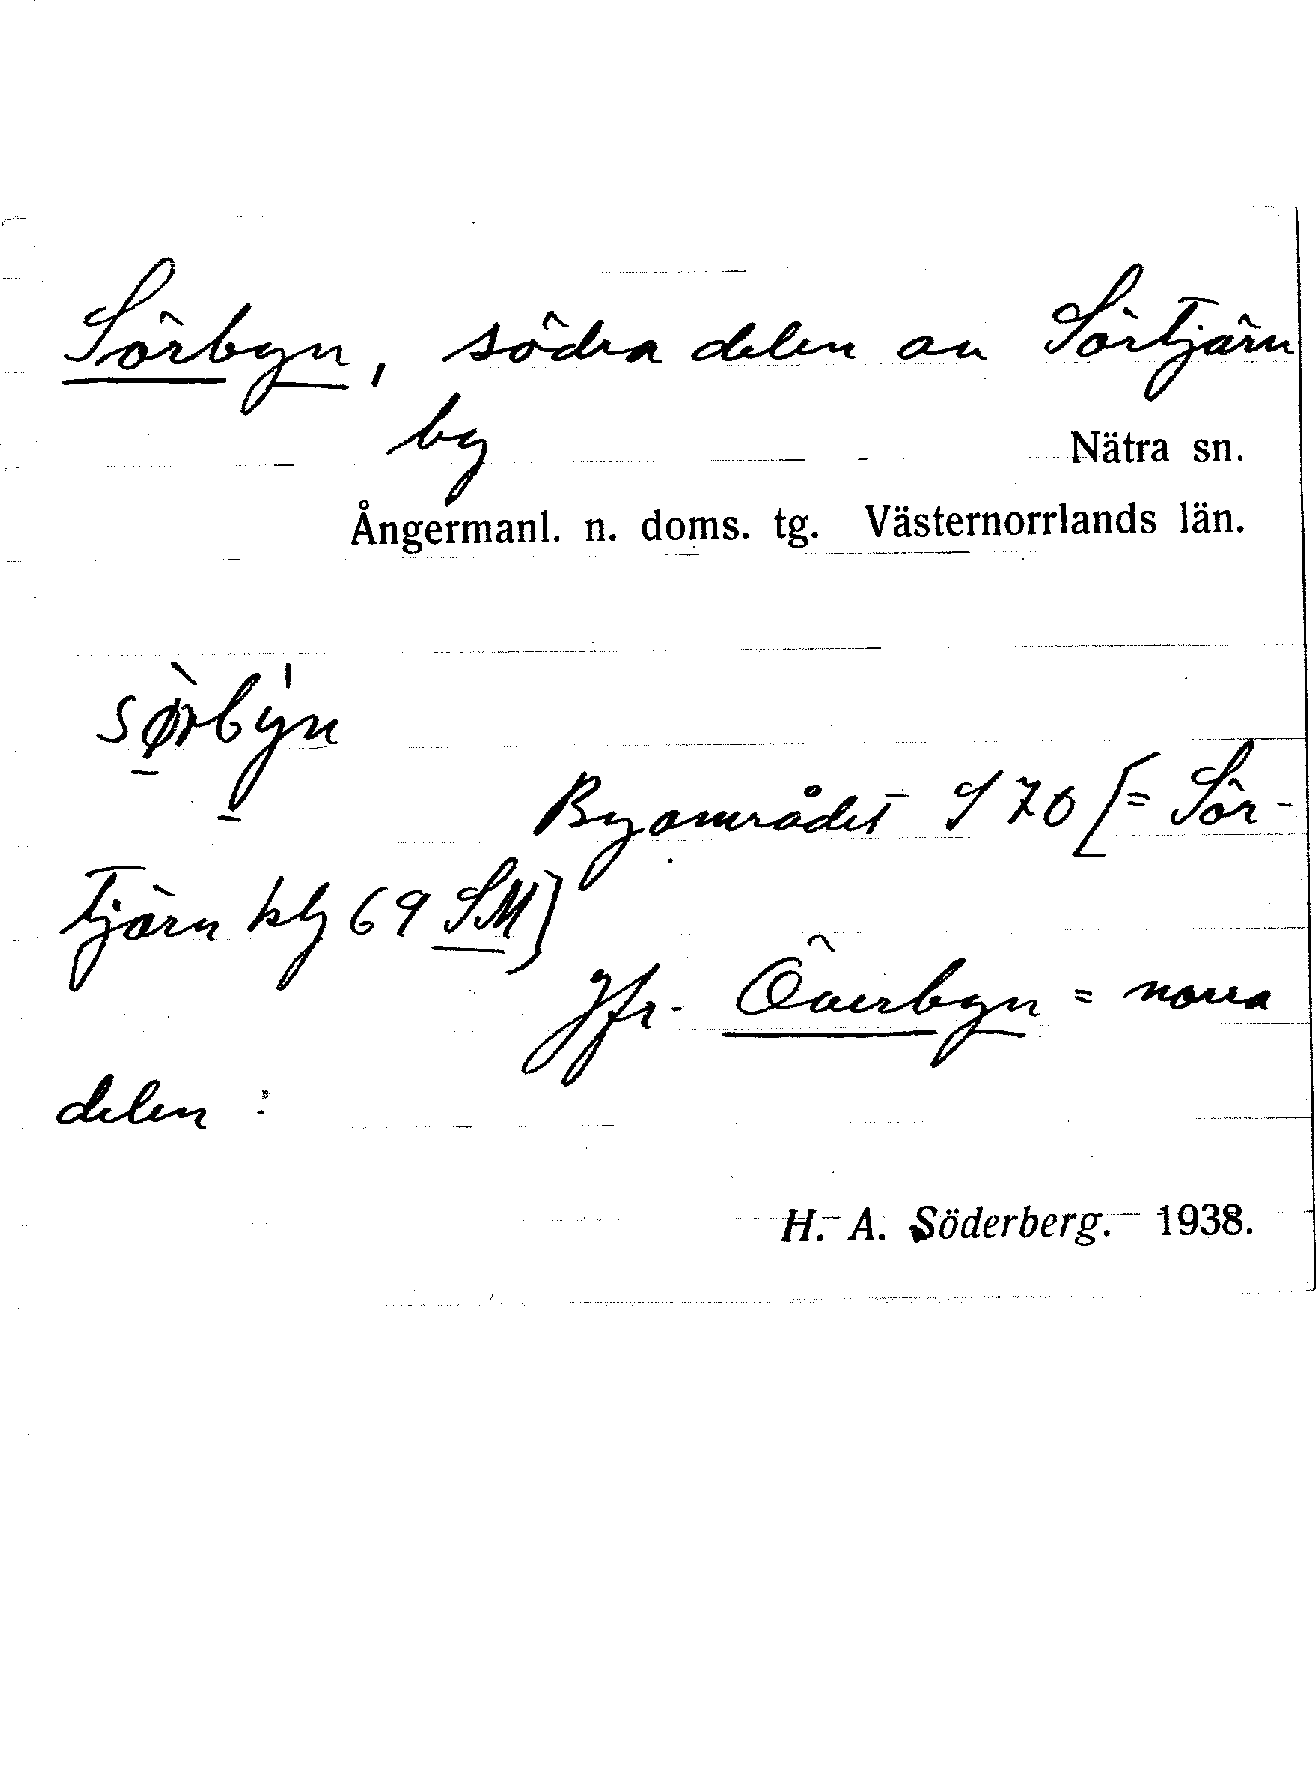 Sörbyn, södra delen av Sörtjärn
by
Nätra sn.
Ångermanl. n. doms. tg. Västernorrlands län.
sørbyn
Byområdet S 70 [= Sör-
tjärn 69 SM]
Jfr. Överbyn = norra
delen :
H. A. Söderberg. 1938.